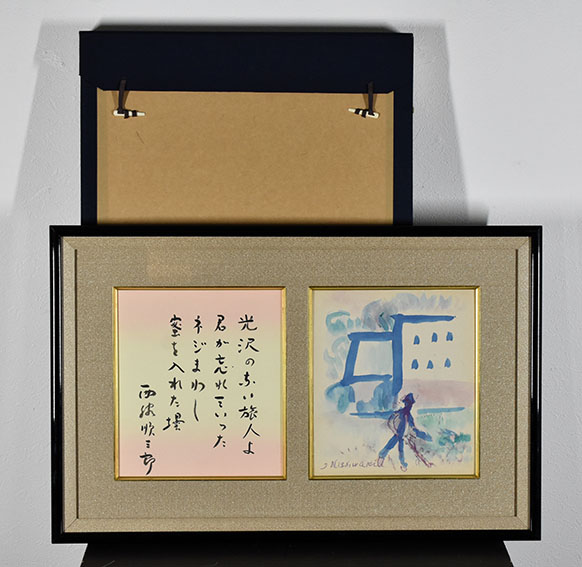 光沢の赤い旅人よ
君が忘れていった
ネジまわし
蜜を入れた壜
西脇順三郎
J Nishiwaki